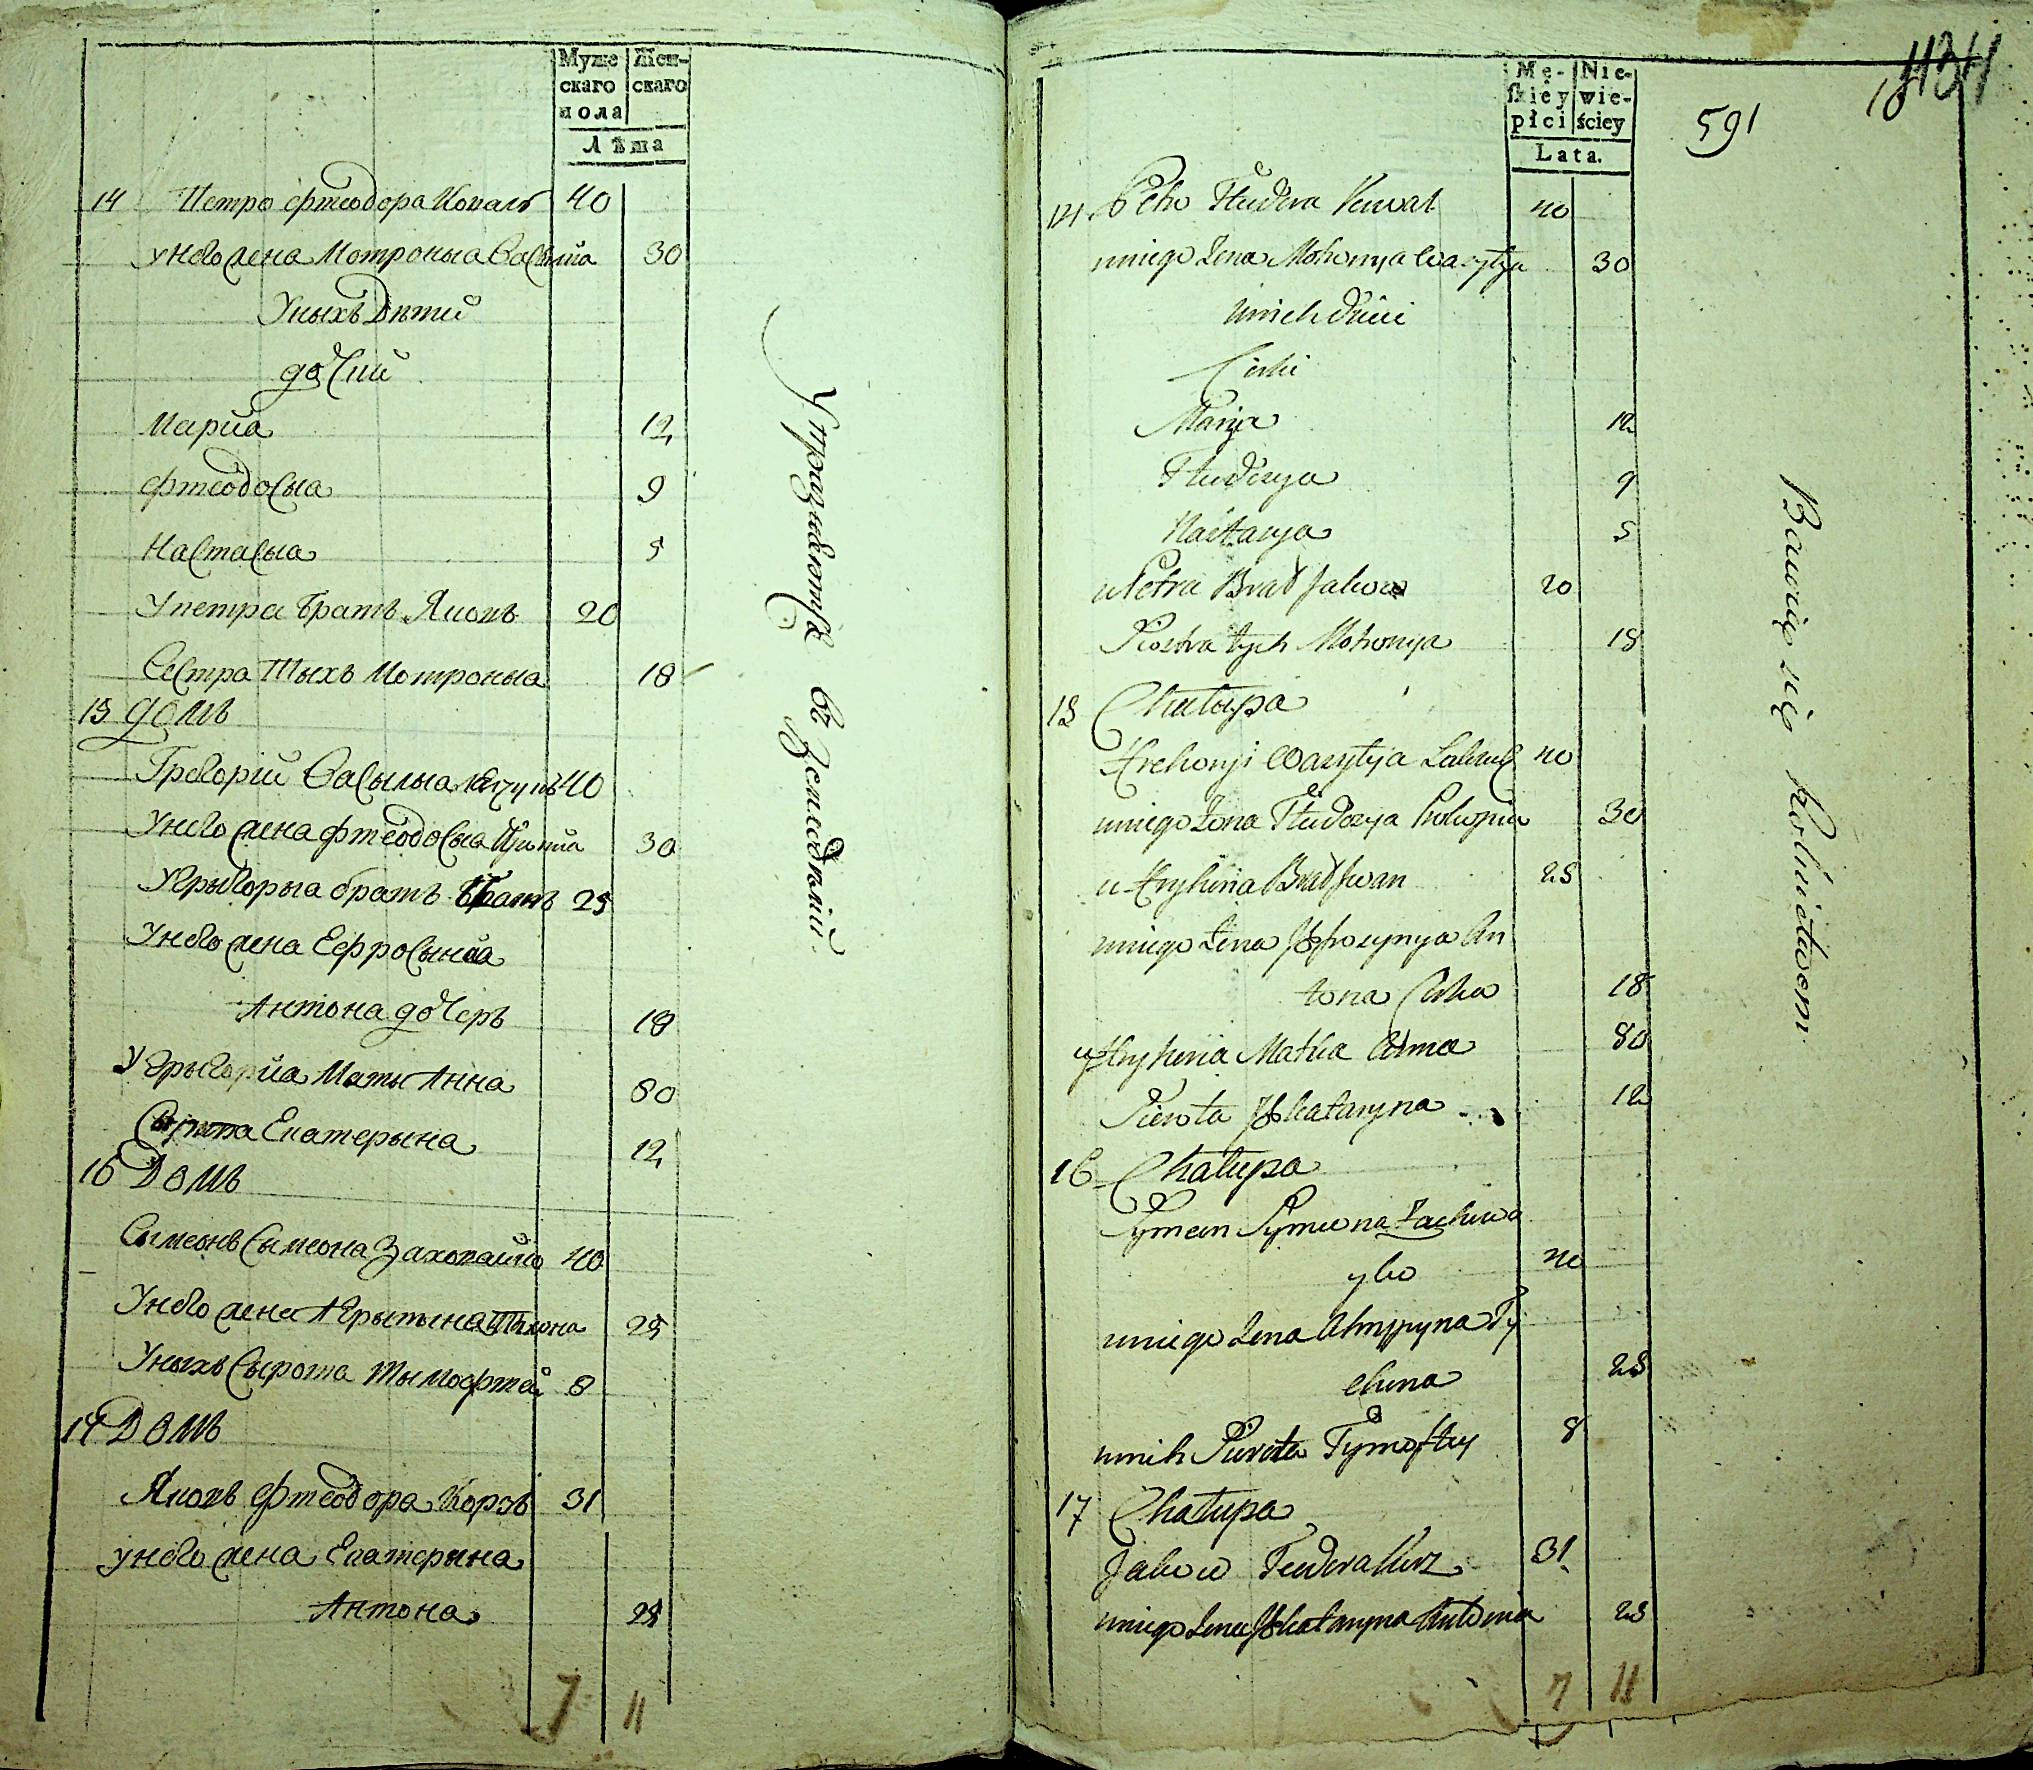 Муже Жен-
скаго скаго
пола
Лѣта
14 Петро Фтеодора Коваль 40
У него жена Мотроныа Василиа 30
У ных Дѣтии
дочки
Мариа 12
Фтеодосыа 9
Настасыа 5
У петра Братъ Яковъ 20
Сестра Тыхъ Мотроныа 18
15 Домъ
Грегорий Василыа 40
У него жена Фтеодосыа 30
У Грыгорыа братъ 25
У него жена Ефросыниа
Антона дочеръ 18
У Грыгорйа Маты Анна 80
Сырота Екатерына 12
16 Домъ
Сымеонъ Сымеона Захопайло 40
У него жена Агрыпына Тыхона 25
У ныхъ Сырота Тымофтей 8
17 Домъ
Яковъ Фтеодора Корзъ 31
У него жена Екатерына
Антона 25
7 11
Упражняются въ Земледѣлій
Mę- Nie-
skiey wie-
płci ściey
Lata.
591
434
14 Petro Fteudora Kowal 40
u niego Żona Motronya Wasylya 30
u nich dzieci
Córki
Marya 12
Fteudozya 9
Nastazya 5
u Petra Brat Jakow 20
Siostra tych Motronya 18
15 Chałupa
Hrehoryi Wasylya 40
u niego Żona Fteudozya Prokopia 30
u Hryhoria Brat Iwan 25
u niego Żona Jefrozynya An
tona Córka 18
u Hryhoria Matka Anna 80
Sierota Jekataryna 12
16 Chałupa
Symeon Symeona Zachopa
yło 40
u niego Żona Ahrypyna Ty
chona 25
u nich Sierota Tymoftey 8
17 Chałupa
Jakow Feudora Korz 31
u niego Żona Jekataryna Antonia 25
7 11
Bawią się Rolnictwem